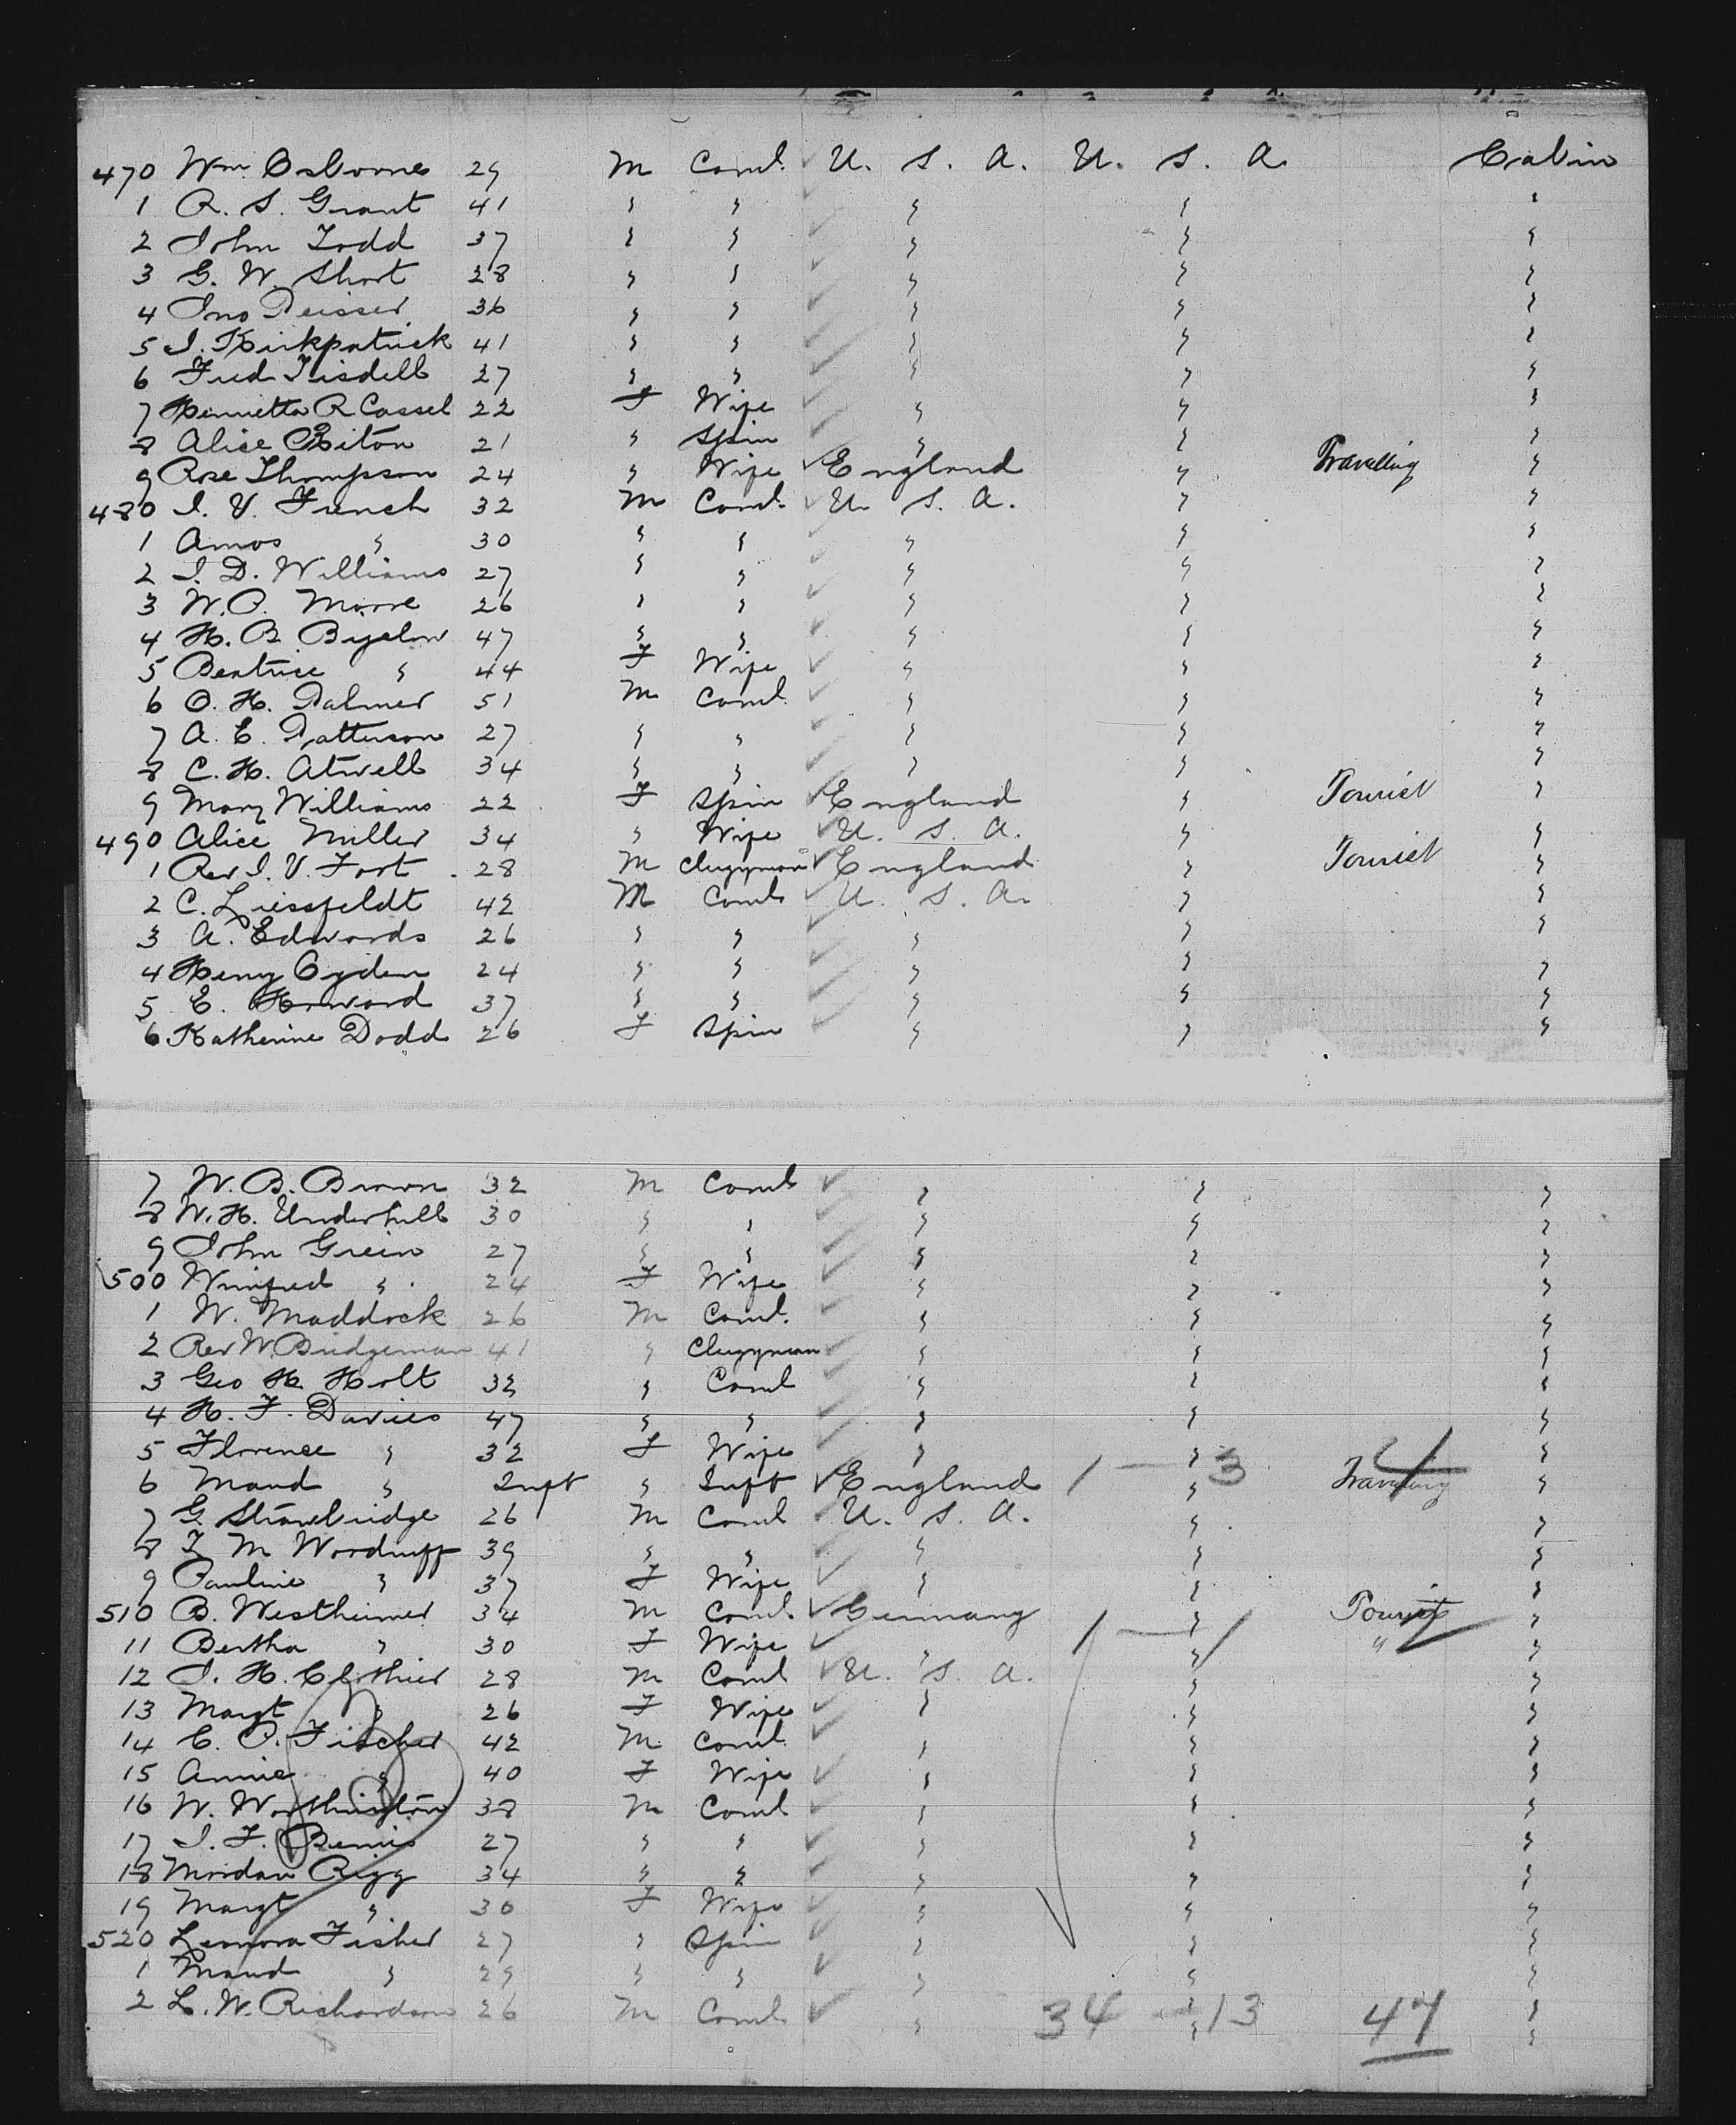 470 Wm. Osborne 29 M Coml. U. S. A. U. S. A. Cabin
1 R. S. Grant 41 " " " " "
2 John Todd 37 " " " " "
3 G. W. Short 28 " " " " "
4 Jno 36 " " " " "
5 J. Kirkpatrick 41 " " " " "
6 Fred Tisdell 27 " " " " "
7 Henrietta R Cassel 22 F Wife " " "
8 Alice 21 " Spin " " "
9 Rose Thompson 24 " Wife England " Travelling "
480 J. V. French 32 M Coml. U. S. A. " "
1 Amos " 30 " " " " "
2 J. D. Williams 27 " " " " "
3 W. P. Moore 26 " " " " "
4 H. B. Bigelow 47 " " " " "
5 Beatrice " 44 F Wife " " "
6 O. H. Palmer 51 M Coml. " " "
7 A. E. Patterson 27 " " " " "
8 C. H. Atwell 34 " " " " "
9 Mary Williams 22 F Spin England " Tourist "
490 Alice Miller 34 " Wife U. S. A. " "
1 Rev J. V. Fort 28 M Clergyman England " Tourist "
2 C. Liessfeldt 42 M Coml U. S. A. " "
3 A. Edwards 26 " " " " "
4 Henry Ogden 24 " " " " "
5 E. Howard 37 " " " " "
6 Katherine Dodd 26 F Spin " " "
7 W. B. Brown 32 M Coml " " "
8 W. H. Underhill 30 " " " " "
9 John Grein 27 " " " " "
500 Winifred " 24 F Wife " " "
1 W. Maddock 26 M Coml. " " "
2 Rev W. Bridgeman 41 " Clergyman " " "
3 Geo H. Holt 32 " Coml " " "
4 H. F. Davies 47 " " " " "
5 Florence " 32 F Wife " " "
6 Maud " Inft " Inft England 1 — 3 " Travelling "
7 G. Strawbridge 26 M Coml U. S. A. " "
8 T. M Woodruff 39 " " " " "
9 Pauline " 37 F Wife " " "
510 B. Westheimer 34 M Coml. Germany 1 — 1 " Tourist "
11 Bertha " 30 F Wife " " " "
12 J. H. Clothier 28 M Coml U. S. A. " "
13 Margt " 26 F Wife " " "
14 E. P. Fischer 42 M Coml. " " "
15 Annie " 40 F Wife " " "
16 W. Worthington 38 M Coml " " "
17 J. F. Bemis 27 " " " " "
18 Mordaw Rigg 34 " " " " "
19 Margt " 30 F Wife " " "
520 Leonora Fisher 27 " Spin " " "
1 Maud " 29 " " " " "
2 L. W. Richardson 26 M Coml " " "
34 13 47